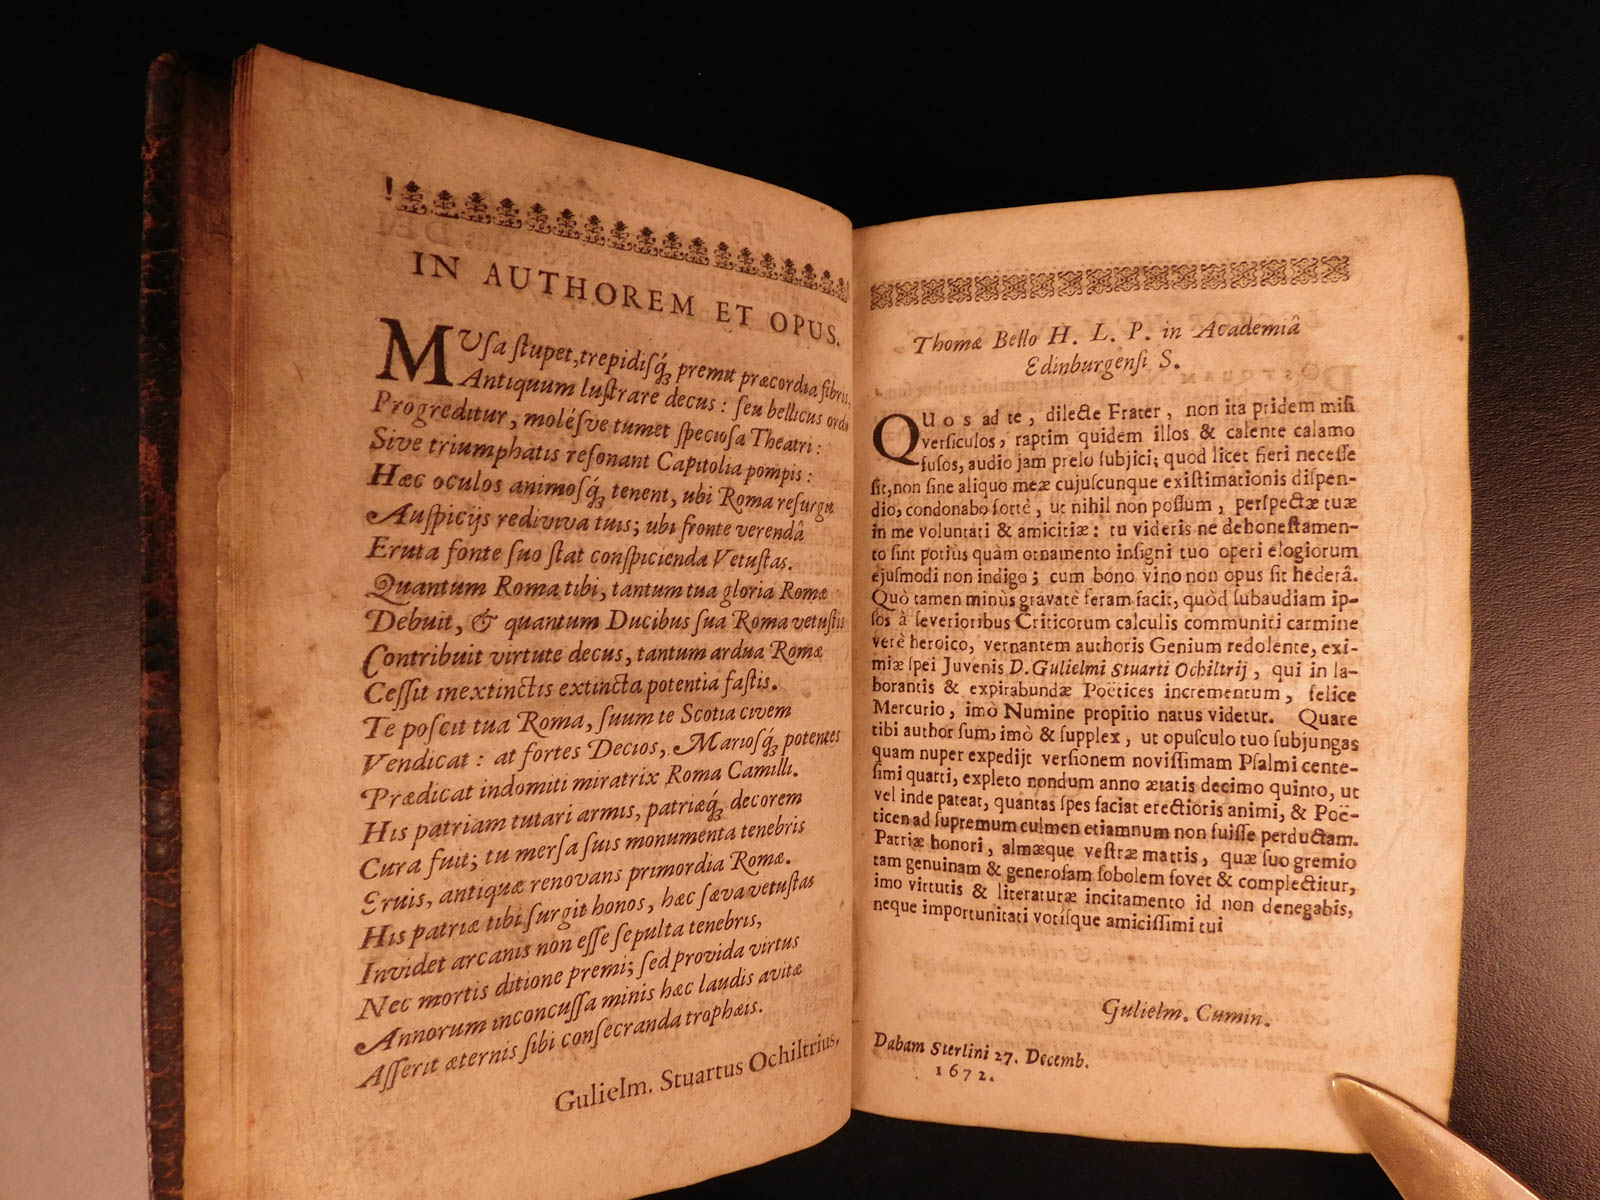 IN AUTHOREM ET OPUS.
MUſa ſtupet, trepidiſq́; premit præcordia fibris,
Antiquum luſtrare decus: ſeu bellicus ordo
Progreditur, moléſve tumet ſpecioſa Theatri:
Sive triumphatis reſonant Capitolia pompis:
Hæc oculos animoſq́; tenent, ubi Roma reſurgit
Auſpicijs rediviva tuis; ubi fronte verendâ
Eruta fonte ſuo ſtat conſpicienda Vetuſtas.
Quantum Roma tibi, tantum tua gloria Romæ
Debuit, & quantum Ducibus ſua Roma vetuſtis
Contribuit virtute decus, tantum ardua Romæ
Ceſſit inextinctis extincta potentia faſtis.
Te poſcit tua Roma, ſuum te Scotia civem
Vendicat: at fortes Decios, Marioſq́; potentes
Prædicat indomiti miratrix Roma Camilli.
His patriam tutari armis, patriæq́; decorem
Cura fuit; tu merſa ſuis monumenta tenebris
Eruis, antiquæ renovans primordia Romæ.
His patriæ tibi ſurgit honos, hæc ſæva vetuſtas
Invidet arcanis non eſſe ſepulta tenebris,
Nec mortis ditione premi; ſed provida virtus
Annorum inconcuſſa minis hæc laudis avitæ
Aſſerit æternis ſibi conſecranda trophæis.
Gulielm. Stuartus Ochiltrius.
Thomæ Bello H. L. P. in Academiâ
Edinburgenſi S.
QUos ad te, dilecte Frater, non ita pridem miſi
verſiculos, raptim quidem illos & calente calamo
fuſos, audio jam prelo ſubjici; quod licet fieri neceſſe
ſit, non ſine aliquo meæ cujuſcunque exiſtimationis diſpen-
dio, condonabo fortè, ut nihil non poſſum, perſpectæ tuæ
in me voluntati & amicitiæ: tu videris ne dehoneſtamen-
to ſint potius quàm ornamento inſigni tuo operi elogiorum
ejuſmodi non indigo; cum bono vino non opus ſit hederâ.
Quò tamen minùs gravatè feram facit, quòd ſubaudiam ip-
ſos à ſeverioribus Criticorum calculis communiti carmine
verè heroico, vernantem authoris Genium redolente, exi-
miæ ſpei Juvenis D. Gulielmi Stuarti Ochiltrij, qui in la-
borantis & expirabundæ Poëtices incrementum, felice
Mercurio, imò Numine propitio natus videtur. Quare
tibi author ſum, imò & ſupplex, ut opuſculo tuo ſubjungas
quam nuper expedijt verſionem noviſſimam Pſalmi cente-
ſimi quarti, expleto nondum anno ætatis decimo quinto, ut
vel inde pateat, quantas ſpes faciat erectioris animi, & Poë-
ticen ad ſupremum culmen etiamnum non fuiſſe perductam.
Patriæ honori, almæque veſtræ matris, quæ ſuo gremio
tam genuinam & generoſam ſobolem fovet & complectitur,
imo virtutis & literaturæ incitamento id non denegabis,
neque importunitati votiſque amiciſſimi tui
Gulielm. Cumin.
Dabam Sterlini 27. Decemb.
1672.